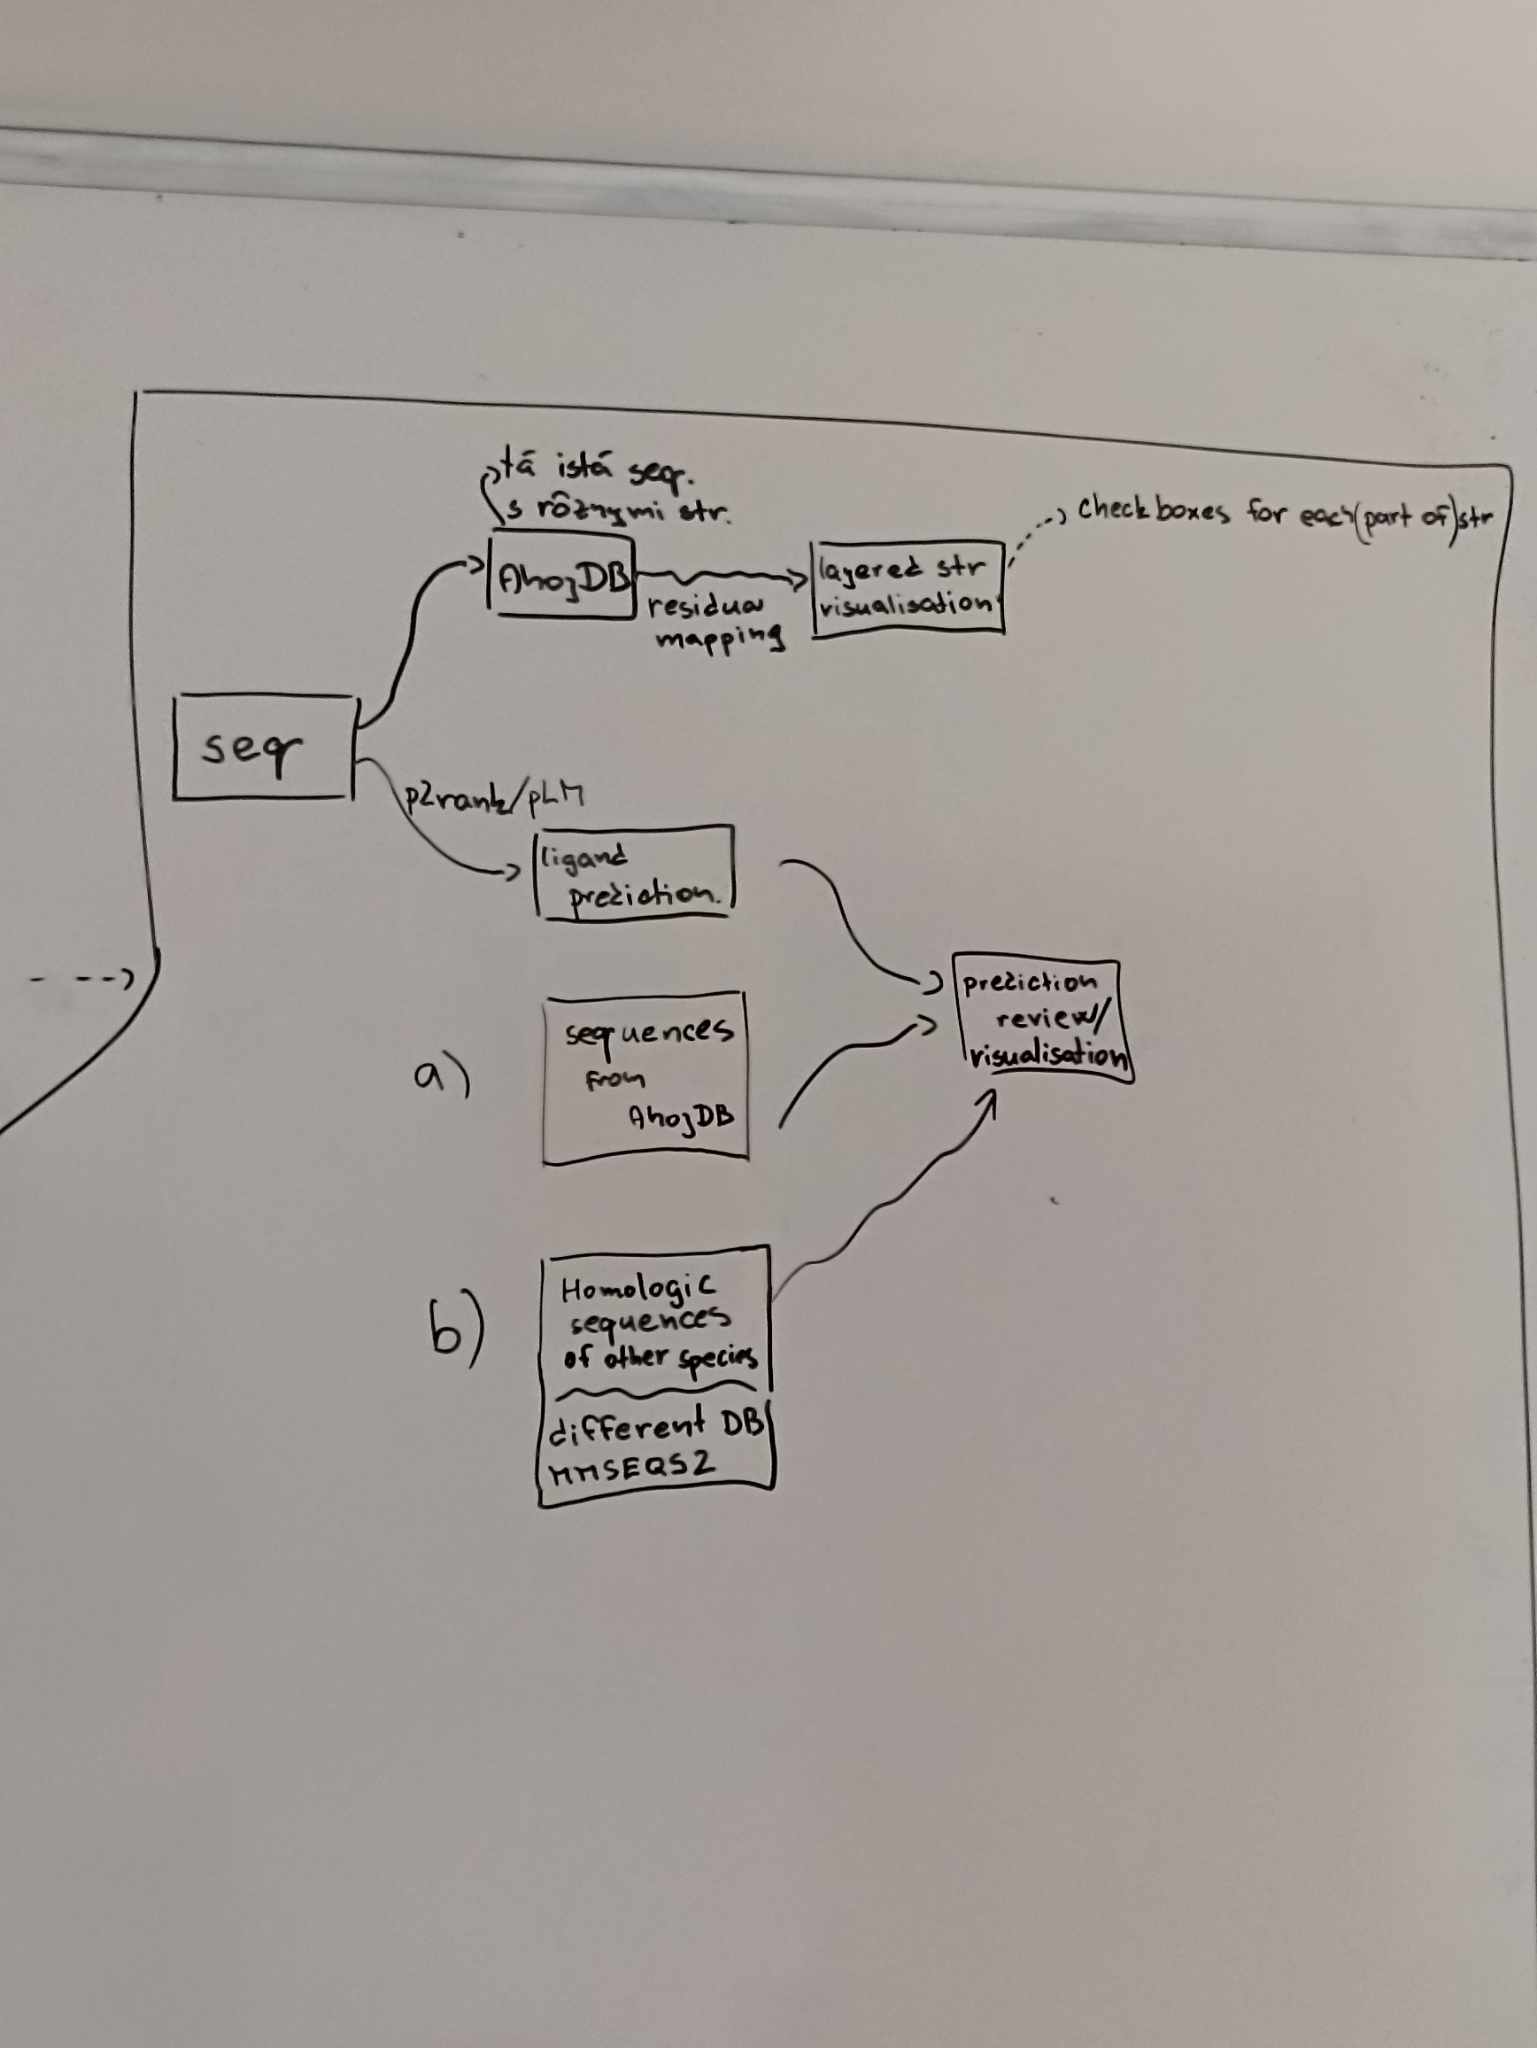 tá istá seq.
s rôznymi str.
AhojDB
residua
mapping
layered str
visualisation
checkboxes for each (part of) str
seq
p2rank/pLM
ligand
prediction.
prediction
review/
visualisation
a)
sequences
from
AhojDB
b)
Homologic
sequences
of other species
different DB
MMSEQS2